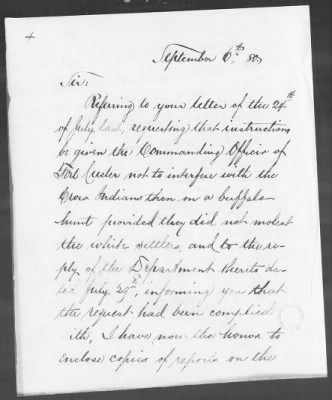 +
September 6th, 80,
Sir:
Referring to your letter of the 24th
of July last, requesting that instructions
be given the Commanding Officer of
Fort Custer not to interfere with the
Crow Indians then on a buffalo
hunt provided they did not molest
the white settlers, and to the re-
ply of the Department thereto da-
ted July 29th, informing you that
the request had been complied
with, I have now the honor to
enclose copies of reports on the